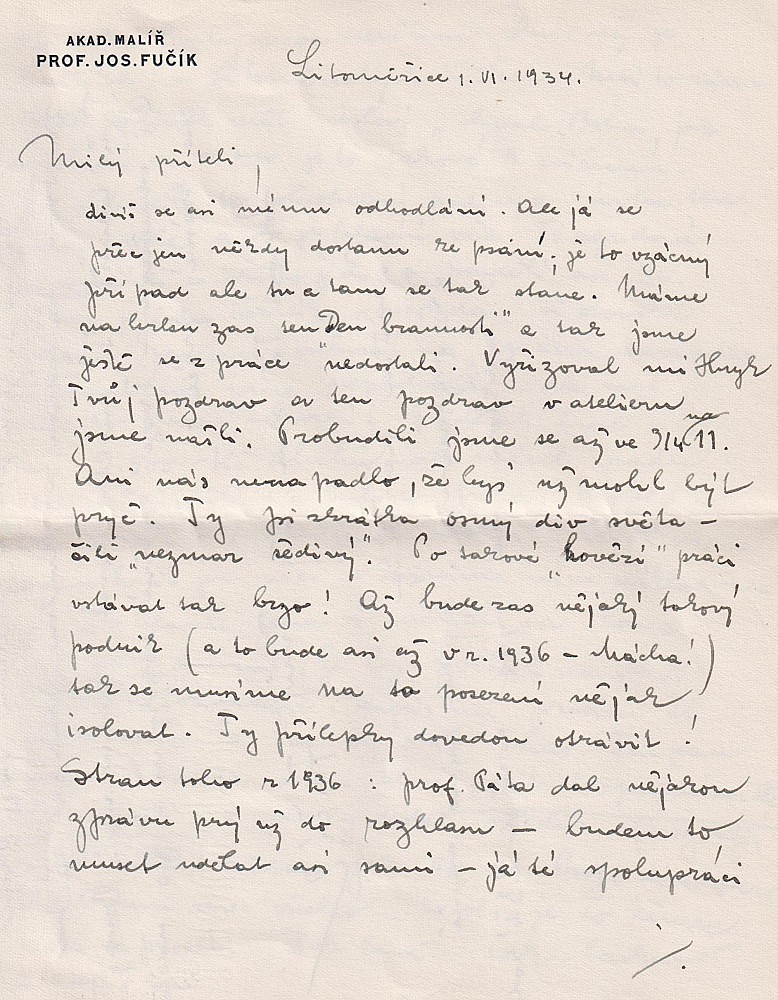 AKAD. MALÍŘ
PROF. JOS. FUČÍK
Litoměřice 1. VI. 1934.
Milý příteli,
divíš se asi mému odhodlání. Ale já se
přec jen někdy dostanu ke psaní: je to vzácný
případ ale tu a tam se tak stane. Máme
na krku zas ten "Den brannosti" a tak jsme
ještě se z práce nedostali. Vyřizoval mi Hnyk
Tvůj pozdrav a ten pozdrav v atelieru
jsme našli. Probudili jsme se až ve 3/4 na 11.
Ani nás nenapadlo, že bys už mohl být
pryč. Ty jsi zkrátka osmý div světa –
čili "nezmar šedivý". Po takové "hovězí" práci
vstávat tak brzo! Až bude zas nějaký takový
podnik (a to bude asi až v r. 1936 – Mácha!)
tak se musíme na to posezení nějak
isolovat. Ty přílepky dovedou otrávit!
Stran toho r 1936 : prof. Páta dal nějakou
zprávu prý už do rozhlasu – budem to
muset udělat asi sami – já té spolupráci
./.